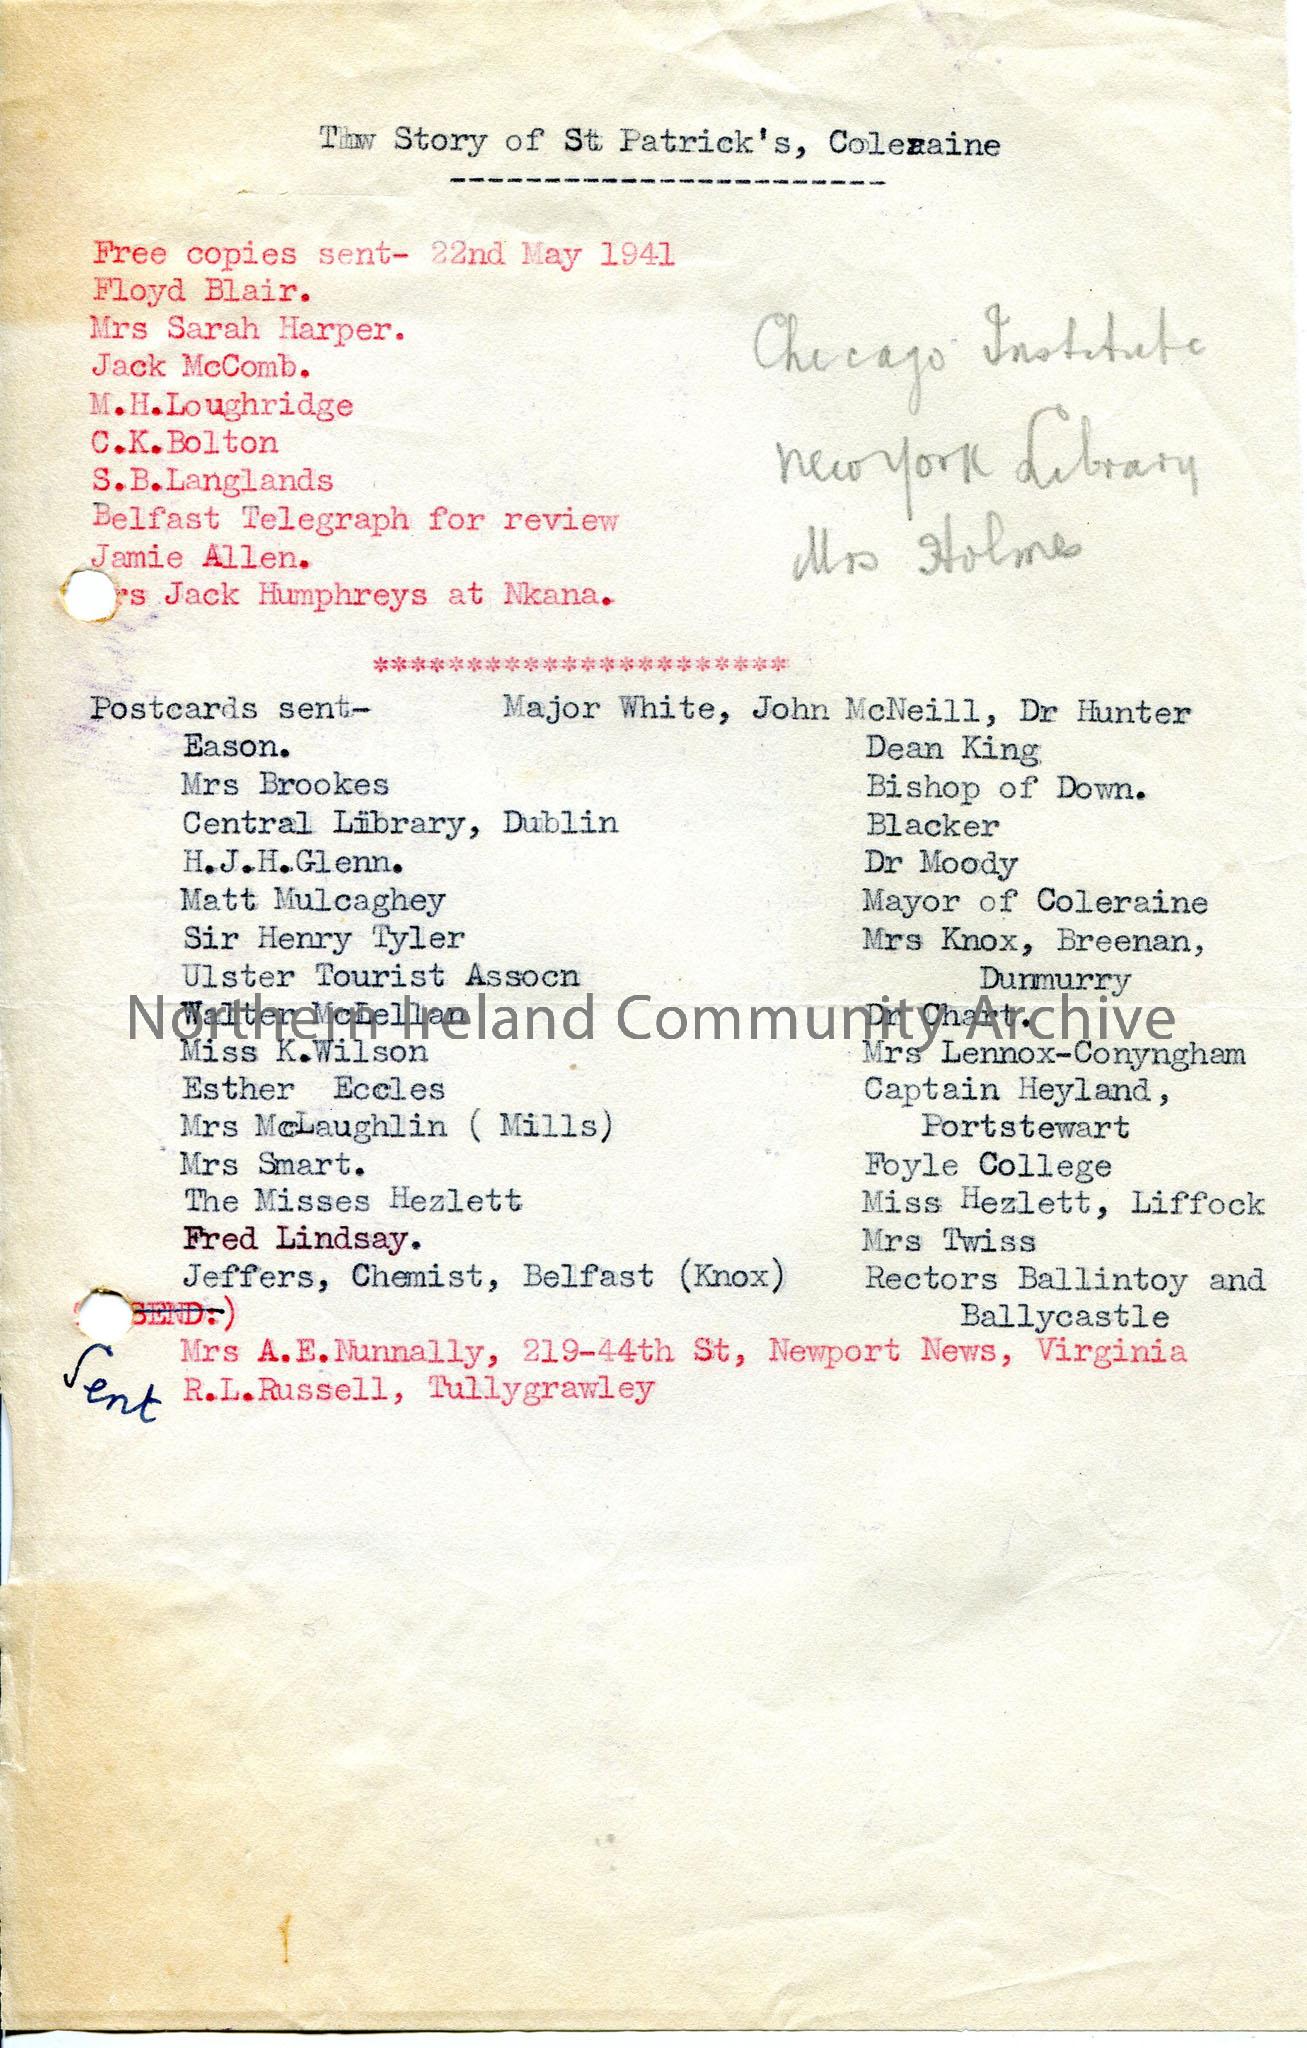 Thw Story of St Patrick's, Coleraine
Free copies sent- 22nd May 1941
Floyd Blair.
Mrs Sarah Harper.
Jack McComb.
M.H.Loughridge
C.K.Bolton
S.B.Langlands
Belfast Telegraph for review
Jamie Allen.
rs Jack Humphreys at Nkana.
Chicago Institute
New York Library
Mrs Holmes
**********************
Postcards sent- Major White, John McNeill, Dr Hunter
Eason.
Mrs Brookes
Central Library, Dublin
H.J.H.Glenn.
Matt Mulcaghey
Sir Henry Tyler
Ulster Tourist Assocn
Walter McLellan
Miss K.Wilson
Esther Eccles
Mrs McLaughlin ( Mills)
Mrs Smart.
The Misses Hezlett
Fred Lindsay.
Jeffers, Chemist, Belfast (Knox)
Dean King
Bishop of Down.
Blacker
Dr Moody
Mayor of Coleraine
Mrs Knox, Breenan,
Dunmurry
Dr Chart.
Mrs Lennox-Conyngham
Captain Heyland,
Portstewart
Foyle College
Miss Hezlett, Liffock
Mrs Twiss
Rectors Ballintoy and
Ballycastle
SEND:)
Mrs A.E.Nunnally, 219-44th St, Newport News, Virginia
Sent
R.L.Russell, Tullygrawley
Northern Ireland Community Archive